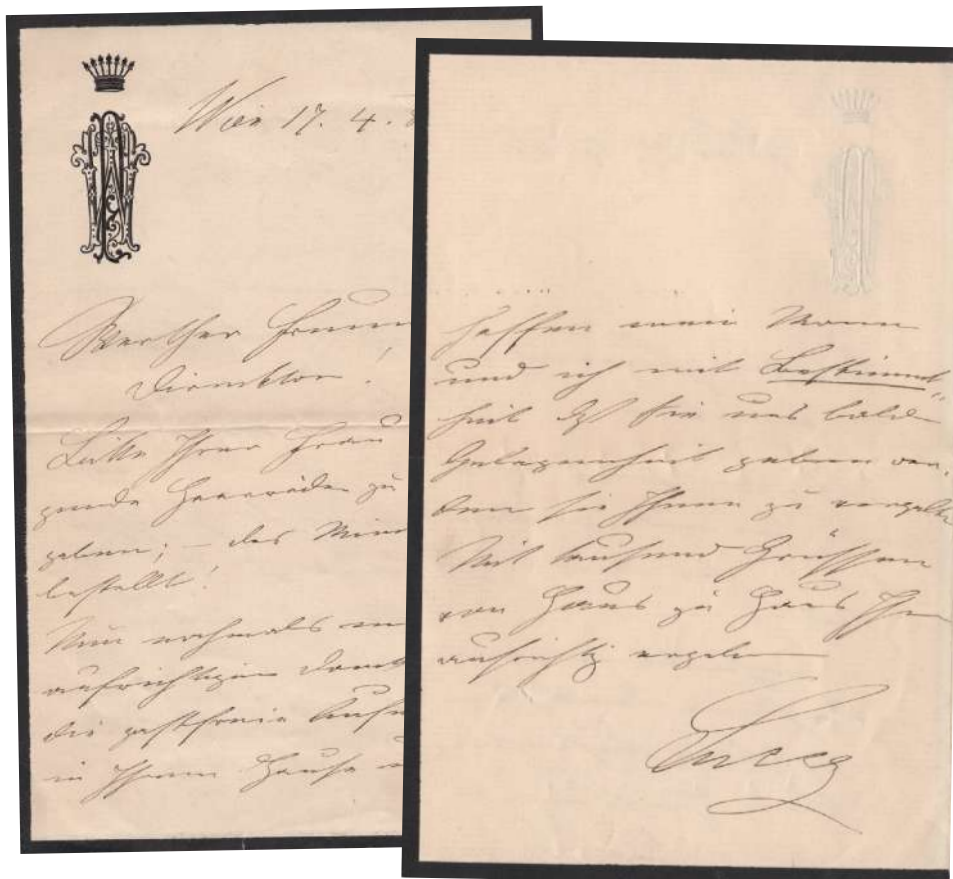 Wien 17. 4.
Werther Herr
Direktor!
Bitte Ihrer Frau
zu
geben; – das
bestellt!
Nun nochmals
aufrichtigen Dank
die gastfreie Aufn
in Ihrem Hause
hoffen mein Mann
und ich mit Bestimmt"
heit daß Sie uns bald
Gelegenheit geben wer¬
den sie Ihnen zu vergelten
Mit tausend Grüssen
von Haus zu Haus Ihre
aufrichtig ergeb